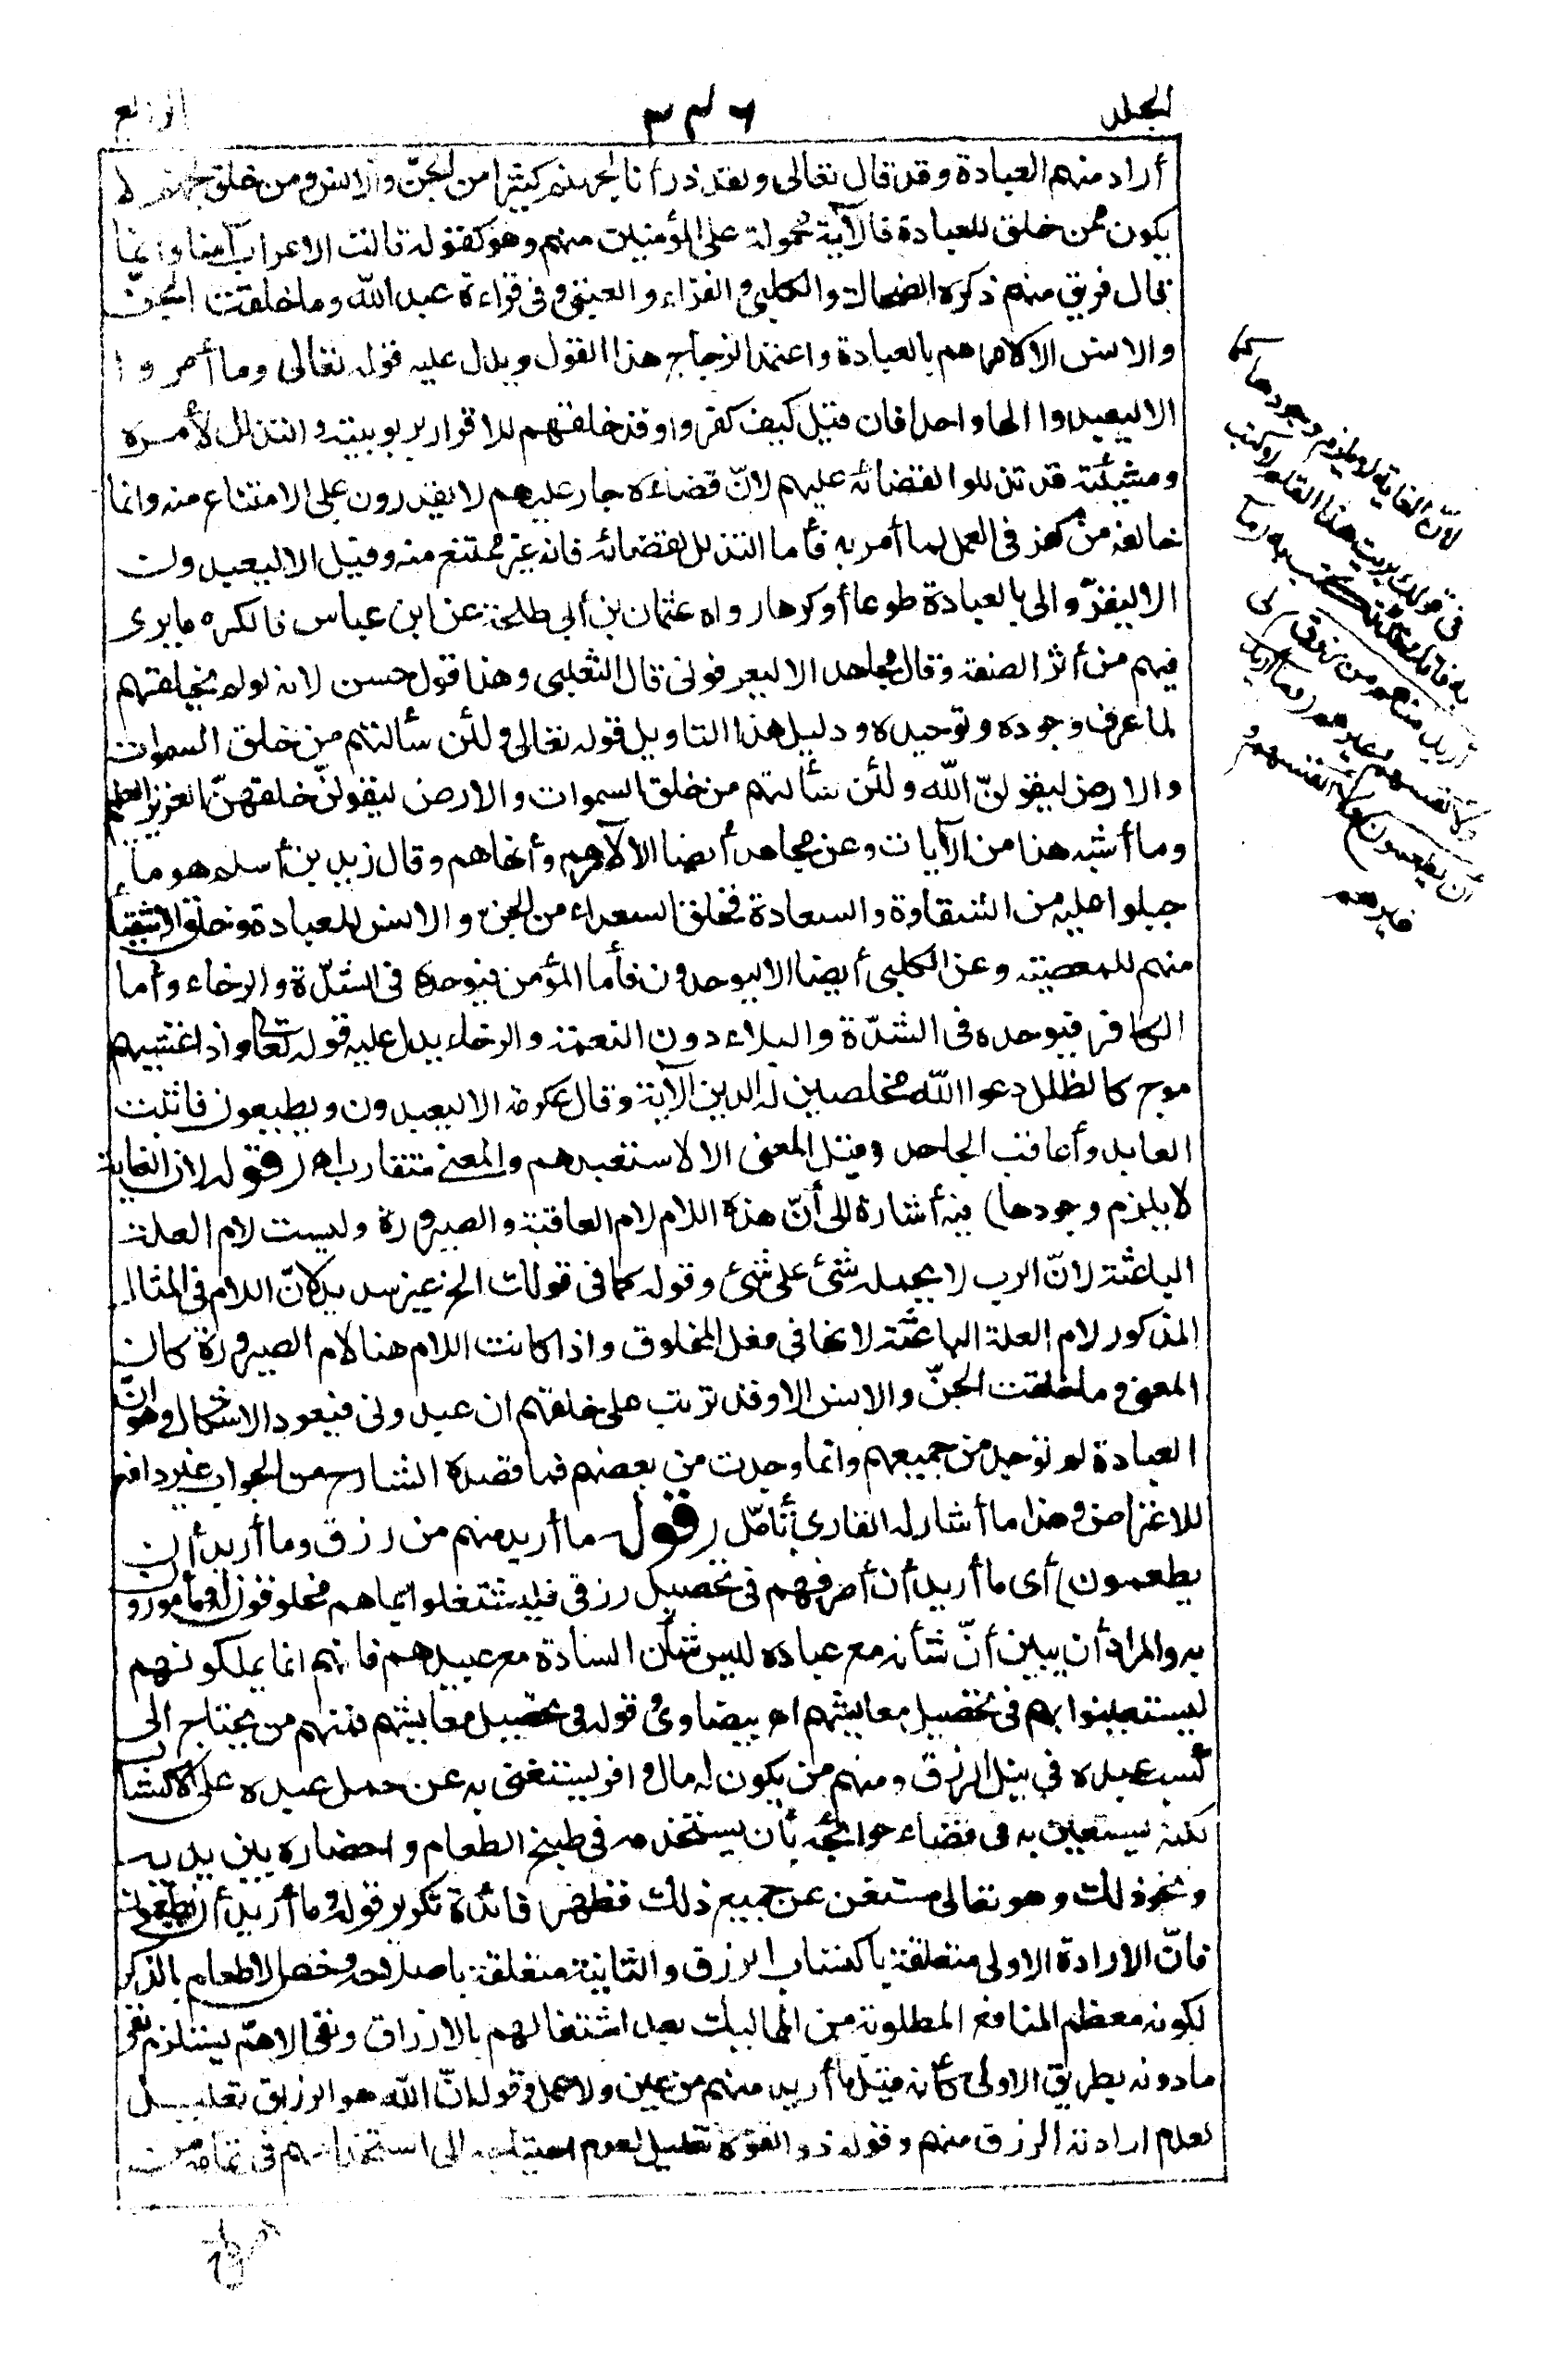 الجلد ٣٣٦ الرابع
أراد منهم العبادة وقد قال تعالى ولقد ذرأنا لجهنم كثيرا من الجنّ والانس ومن خلق لجهنم لا
يكون ممن خلق للعبادة فالآية محمولة على المؤمنين منهم وهو كقوله قالت الاعراب آمنا وانما
قال فريق منهم ذكره الضحاك والكلبي والفراء والعيني وفى قراءة عبد الله وما خلقت الجنّ
والانس الا لآمرهم بالعبادة واعتمد الزجاج هذا القول ويدل عليه قوله تعالى وما أمروا
الا ليعبدوا الها واحدا فان قيل كيف كفروا وقد خلقهم للاقرار بربوبيته والتذلل لأمره
ومشيئته قد تذللوا لقضائه عليهم لانّ قضاءه جار عليهم لا يقدرون على الامتناع منه وانما
خالفه من كفر فى العمل لما أمر به فأما التذلل لقضائه فانه غير ممتنع منه وقيل الا ليعبدون
الا ليقرّوا لى بالعبادة طوعا أو كرها رواه عثمان بن أبى طلحة عن ابن عباس فالكره ما يرى
فيهم من أثر الصنعة وقال مجاهد الا ليعرفونى قال الثعلبى وهذا قول حسن لانه لو لم يخلقهم
لما عرف وجوده وتوحيده ودليل هذا التاويل قوله تعالى ولئن سألتهم من خلق السموات
والارض ليقولنّ الله ولئن سألتهم من خلق السموات والارض ليقولنّ خلقهنّ العزيز العليم
وما أشبه هذا من الآيات وعن مجاهد أيضا الا لآمرهم وأنهاهم وقال زيد بن أسلم هو ما
جبلوا عليه من الشقاوة والسعادة فخلق السعداء من الجنّ والانس للعبادة وخلق الاشقياء
منهم للمعصية وعن الكلبى أيضا الا ليوحدون فأما المؤمن فيوحده فى الشدّة والرخاء وأما
الكافر فيوحده فى الشدّة والبلاء دون النعمة والرخاء يدل عليه قوله تعالى واذا غشيهم
موج كالظلل دعوا الله مخلصين له الدين الآية وقال عكرمة الا ليعبدون ويطيعون فاثيب
العابد وأعاقب الجاحد وقيل المعنى الا لاستعبدهم والمعنى متقارب اه (قوله لان الغاية
لا يلزم وجودها) فيه أشارة الى أنّ هذه اللام لام العاقبة والصيرورة وليست لام العلة
الباعثة لانّ الرب لا يحمله شئ على شئ وقوله كما فى قولك الخ غير سديد لانّ اللام فى المثال
المذكور لام العلة الباعثة لانها فى فعل المخلوق واذا كانت اللام هنا لام الصيرورة كان
المعنى وما خلقت الجنّ والانس الا وقد ترتب على خلقهم ان عبدونى فيعود الاشكال وهو انّ
العبادة لم توجد من جميعهم وانما وجدت من بعضهم فما قصده الشارح من الجواب غير دافع
للاعتراض وهذا ما أشار له القارى تأمّل (قوله ما أريد منهم من رزق وما أريد أن
يطعمون) أى ما أريد أن أصرفهم فى تحصيل رزقى فليشتغلوا بما هم مخلوقون له ومأمورون
به والمراد أن يبين أنّ شأنه مع عباده ليس شأن السادة مع عبيدهم فانهم انما يملكونهم
ليستعينوا بهم فى تحصيل معايشهم اه بيضاوى قوله فى تحصيل معايشهم فمنهم من يحتاج الى
كسب عبده فى نيل الرزق ومنهم من يكون له مال وافر يستغنى به عن حمل عبده على الاكتساب
لكنه يستعين به فى قضاء حوائجه بأن يستخدمه فى طبخ الطعام واحضاره بين يديه
ونحو ذلك وهو تعالى مستغن عن جميع ذلك فظهر فائدة تكرير قوله وما أريد أن يطعمون
فانّ الارادة الاولى متعلقة باكتساب الرزق والثانية متعلقة باصلاحه وخص الاطعام بالذكر
لكونه معظم المنافع المطلوبة من المماليك بعد اشتغالهم بالارزاق ونفى الاهمّ يستلزم نفى
ما دونه بطريق الاولى كأنه قيل ما أريد منهم من عين ولا عمل وقوله انّ الله هو الرزاق تعليل
لعدم ارادته الرزق منهم وقوله ذو القوّة تعليل لعدم احتياجه الى استخدامهم فى
لانّ الغاية لا يلزم وجودها كما
فى قولك بريت هذا القلم لاكتب
به فانك قد لا تكتب به (ما
أريد منهم من رزق) لى
ولانفسهم وغيرهم (وما أريد
أن يطعمون) ولا أنفسهم و
غيرهم